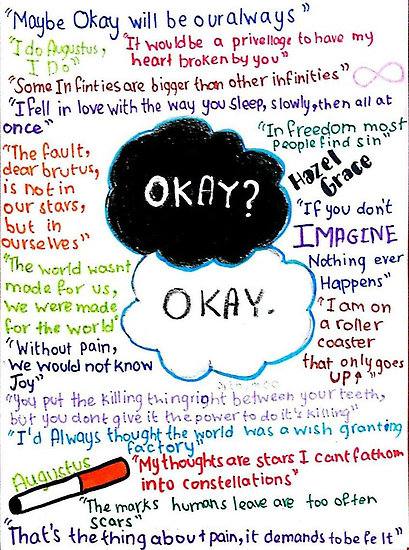 "Maybe Okay will be our always"
"I do Augustus,
I Do"
"It would be a privellage to have my
heart broken by you"
"Some Infinties are bigger than other infinities"
"I fell in love with the way you sleep, slowly, then all at
once"
"In freedom most
people find sin"
"The fault,
dear brutus,
is not in
our stars,
but in
ourselves"
OKAY?
Hazel
Grace
"If you don't
IMAGINE
Nothing ever
Happens"
"The world wasnt
made for us,
we were made
for the world"
OKAY.
"I am on
a roller
coaster
that only goes
UP↑"
"Without pain,
we would not know
Joy"
"You put the killing thing right between your teeth,
but you dont give it the power to do it's killing"
"I'd Always thought the world was a wish granting
factory"
Augustus
"My thoughts are stars I cant fathom
into constellations"
"The marks humans leave are too often
scars"
"That's the thing about pain, it demands to be felt"